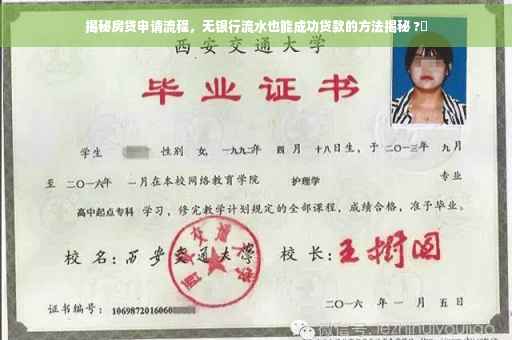 揭秘房贷申请流程，无银行流水也能成功贷款的方法揭秘 ?
西安交通大学
毕业证书
学生 性别 女，一九九二年 四 月 十八日生，于 二〇一三年 九月
至 二〇一六年 一月在本校网络教育学院 护理学 专业
高中起点专科 学习，修完教学计划规定的全部课程，成绩合格，准予毕业。
校 名：西安交通大学 校 长：王树国
证书编号：1069872016060
二〇一六 年 一 月 五 日
微信号: jiezhinuiyoujiao